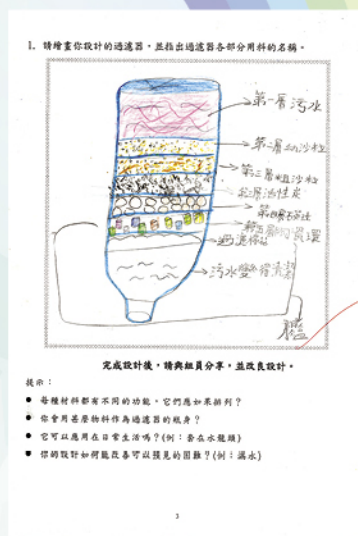 1. 請繪畫你設計的過濾器，並指出過濾器各部分用料的名稱。
第一層污水
第二層幼沙粒
第三層粗沙粒
層活性炭
第層石
第五層陶瓷環
過濾棉
污水變得清潔
完成設計後，請與組員分享，並改良設計。
提示：
● 每種材料都有不同的功能，它們應如果排列？
● 你會用甚麼物料作為過濾器的瓶身？
● 它可以應用在日常生活嗎？(例：套在水龍頭)
● 你的設計如何能改善可以預見的困難？(例：漏水)
3